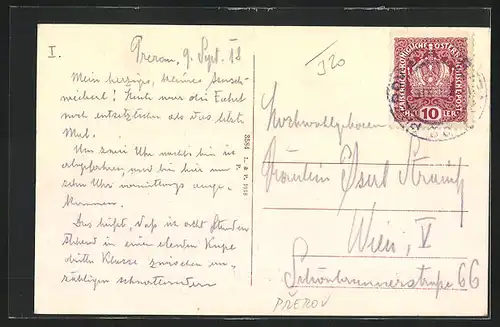 I.
Prerau, 9. Sept. 18
Mein herziges, kleines
Heuer war die Fahrt
noch entsetzlicher als das letzte
Mal.
Um zwei Uhr nachts bin ich
abgefahren, und bin hier um
zehn Uhr vormittags ange-
kommen.
Das heißt, daß ich acht Stunden
stehend in einem elenden Kupe
dritter Klasse zwischen un-
zähligen schnatternden
3584 L. & P. 1918
P.
J20
KAISERLICHE KÖNIGLICHE ÖSTERREICHISCHE POST
10
HELLER
Hochwohlgeboren
Fräulein
Wien, V
Schönbrunnerstraße 66
PŘEROV